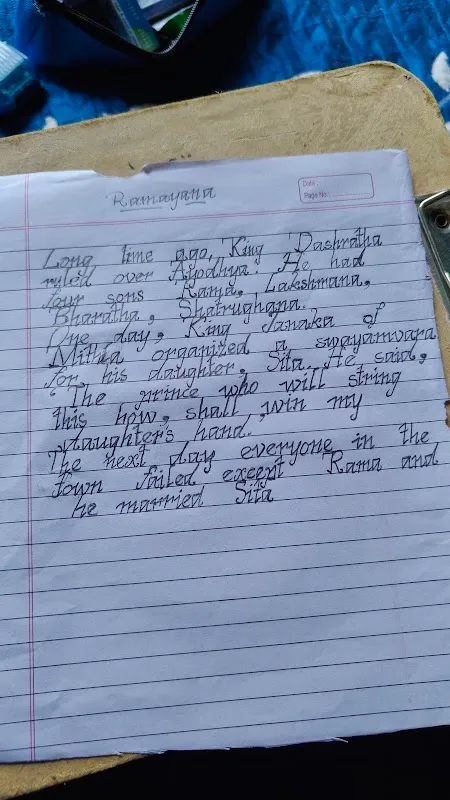 Ramayana
Date :
Page No :
Long time ago, King Dashratha
ruled over Ayodhya. He had
four sons Rama, Lakshmana,
Bharatha, Shatrughana.
One day, King Janaka of
Mithla organized a swayamvara
for his daughter, Sita. He said,
"The prince who will string
this bow, shall win my
daughter's hand.
The next day everyone in the
town failed except Rama and
he married Sita